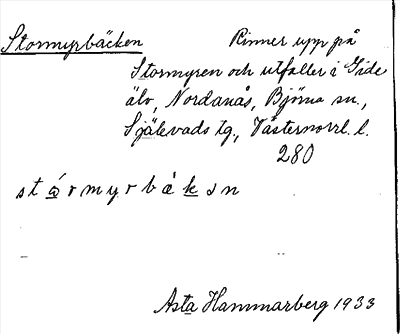 Stormyrbäcken Rinner upp på
Stormyren och utfaller i Gide
älv, Nordanås, Björna sn.,
Själevads tg., Västernorrl. l.
280
st á̱ r m y r b ȧ k̲ ə n
Asta Hammarberg 1933